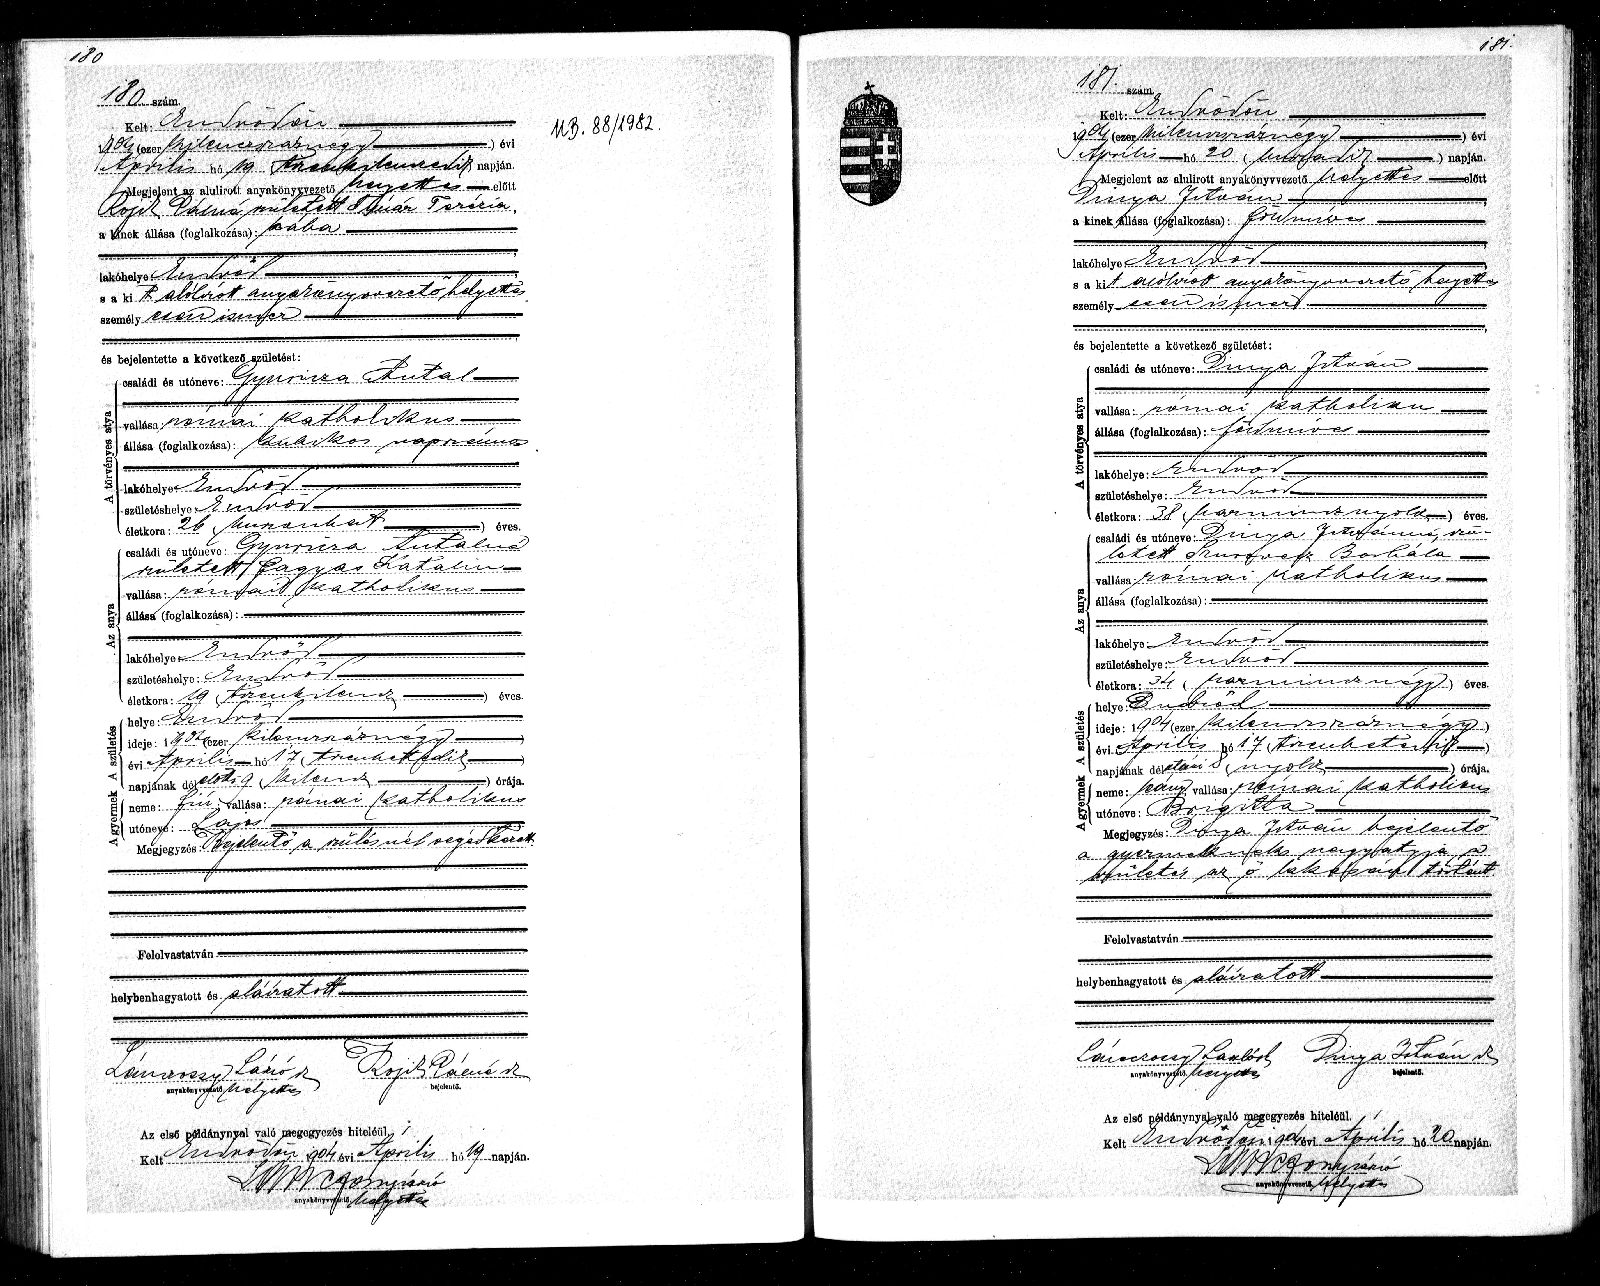 180
180 szám.
Kelt: Endrődön
1904 (ezer kilenczszáznégy) évi
Április hó 19 (tizenkilenczedik) napján.
Megjelent az alulirott anyakönyvvezető helyettes előtt
született Teréz,
a kinek állása (foglalkozása): bába
lakóhelye: Endrőd
s a kit alólirott anyakönyvvezető helyettes
személyesen ismer
és bejelentette a következő születést:
A törvényes atya
családi és utóneve: Gyuricza Antal
vallása: római katholikus
állása (foglalkozása): kubikos napszámos
lakóhelye: Endrőd
születéshelye: Endrőd
életkora: 26 (huszonhat) éves.
Az anya
családi és utóneve: Gyuricza Antalné
született Katalin
vallása: római katholikus
állása (foglalkozása):
lakóhelye: Endrőd
születéshelye: Endrőd
életkora: 19 (tizenkilencz) éves.
A gyermek A születés
helye: Endrőd
ideje: 1904 (ezer kilenczszáznégy)
évi Április hó 17 (tizenhetedik)
napjának délelőtt 9 (kilencz) órája.
neme: fiú; vallása: római katholikus
utóneve: Lajos
Megjegyzés: Bejelentő a szülésnél segédkezett
Felolvastatván
helybenhagyatott és aláiratott
anyakönyvvezető helyettes
bejelentő.
Az első példánynyal való megegyezés hiteléül.
Kelt Endrődön 1904 évi Április hó 19 napján.
anyakönyvvezető helyettes
MB. 88/1982.
181.
181. szám.
Kelt: Endrődön
1904 (ezer kilenczszáznégy) évi
Április hó 20 (huszadik) napján.
Megjelent az alulirott anyakönyvvezető helyettes előtt
Dinya István
a kinek állása (foglalkozása): földmives
lakóhelye: Endrőd
s a kit alólirott anyakönyvvezető helyettes
személyesen ismer
és bejelentette a következő születést:
A törvényes atya
családi és utóneve: Dinya István
vallása: római katholikus
állása (foglalkozása): földmives
lakóhelye: Endrőd
születéshelye: Endrőd
életkora: 38 (harmincznyolcz) éves.
Az anya
családi és utóneve: Dinya Istvánné, szü-
letett Borbála
vallása: római katholikus
állása (foglalkozása):
lakóhelye: Endrőd
születéshelye: Endrőd
életkora: 34 (harmincznégy) éves.
A gyermek A születés
helye: Endrőd
ideje: 1904 (ezer kilenczszáznégy)
évi Április hó 17 (tizenhetedik)
napjának délutáni 8 (nyolcz) órája.
neme: leány, vallása: római katholikus
utóneve: Brigitta
Megjegyzés: Dinya István bejelentő
a gyermeknek nagyatyja, a
születés az ő lakásán történt
Felolvastatván
helybenhagyatott és aláiratott
Dinya István
anyakönyvvezető helyettes
bejelentő.
Az első példánynyal való megegyezés hiteléül.
Kelt Endrődön 1904 évi Április hó 20 napján.
anyakönyvvezető helyettes